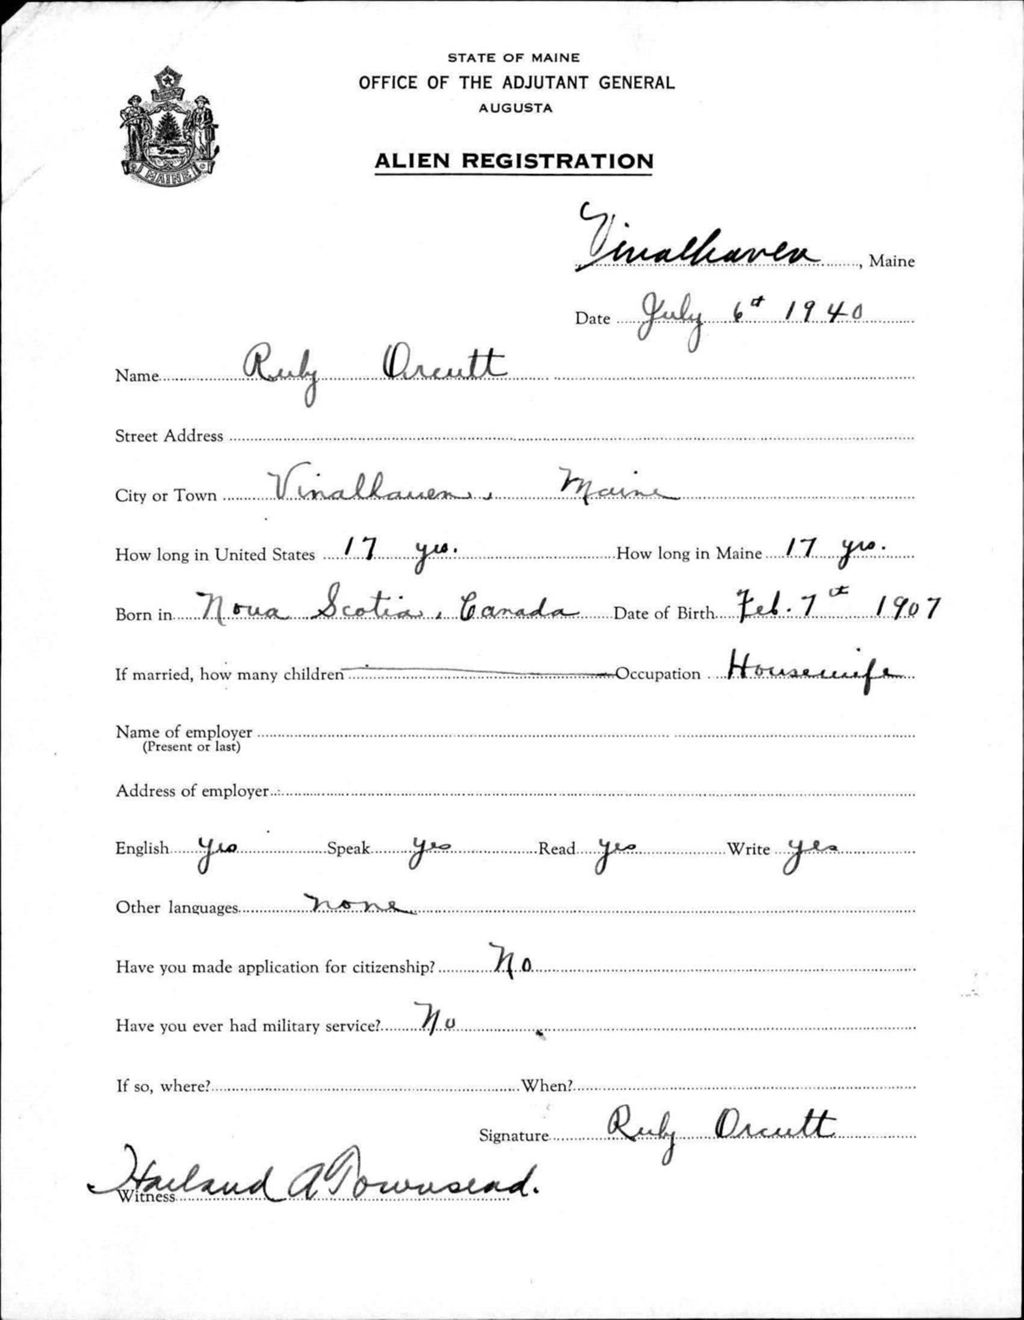 STATE OF MAINE
OFFICE OF THE ADJUTANT GENERAL
AUGUSTA
ALIEN REGISTRATION
MAINE
Vinalhaven, Maine
Date July 6th 1940
Name Ruby Orcutt
Street Address
City or Town Vinalhaven, Maine
How long in United States 17 yrs. How long in Maine 17 yrs.
Born in Nova Scotia, Canada Date of Birth Feb. 7th 1907
If married, how many children Occupation Housewife
Name of employer
(Present or last)
Address of employer
English yes Speak yes Read yes Write yes
Other languages none
Have you made application for citizenship? No
Have you ever had military service? No
If so, where? When?
Signature Ruby Orcutt
Witness Harland A Townsend.